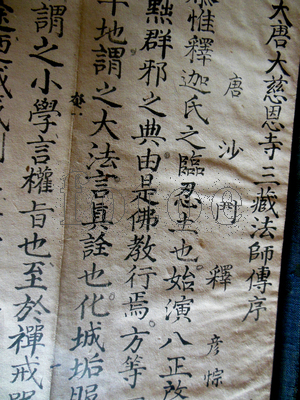 大唐大慈恩寺三藏法師傳序
唐沙門釋彦悰
惟釋迦氏之臨忍土也始演八正
黜群邪之典由是佛教行焉方等
十地謂之大法言真詮也化城垢服
謂之小學言權旨也至於禪戒